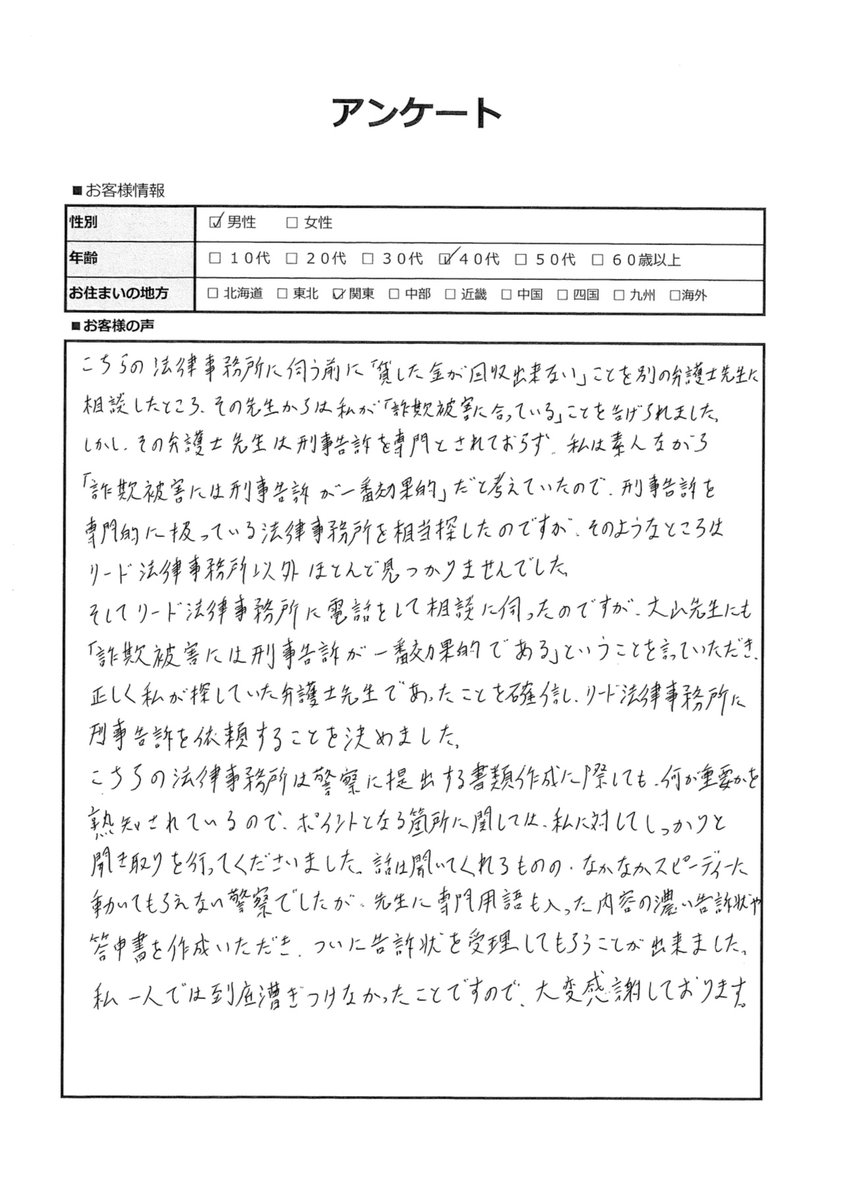 アンケート
■お客様情報
性別 ☑ 男性 □ 女性
年齢 □ 10代 □ 20代 □ 30代 ☑ 40代 □ 50代 □ 60歳以上
お住まいの地方 □ 北海道 □ 東北 ☑ 関東 □ 中部 □ 近畿 □ 中国 □ 四国 □ 九州 □海外
■お客様の声
こちらの法律事務所に伺う前に「貸した金が回収出来ない」ことを別の弁護士先生に
相談したところ、その先生からは私が「詐欺被害に合っている」ことを告げられました。
しかし、その弁護士先生は刑事告訴を専門とされておらず、私は素人ながら
「詐欺被害には刑事告訴が一番効果的」だと考えていたので、刑事告訴を
専門的に扱っている法律事務所を相当探したのですが、そのようなところは
リード法律事務所以外ほとんど見つかりませんでした。
そしてリード法律事務所に電話をして相談に伺ったのですが、大山先生にも
「詐欺被害には刑事告訴が一番効果的である」ということを言っていただき、
正しく私が探していた弁護士先生であったことを確信し、リード法律事務所に
刑事告訴を依頼することを決めました。
こちらの法律事務所は警察に提出する書類作成に際しても、何が重要かを
熟知されているので、ポイントとなる箇所に関しては、私に対してしっかりと
聞き取りを行ってくださいました。話は聞いてくれるものの、なかなかスピーディーに
動いてもらえない警察でしたが、先生に専門用語も入った内容の濃い告訴状や
答申書を作成いただき、ついに告訴状を受理してもらうことが出来ました。
私一人では到底漕ぎつけなかったことですので、大変感謝しております。